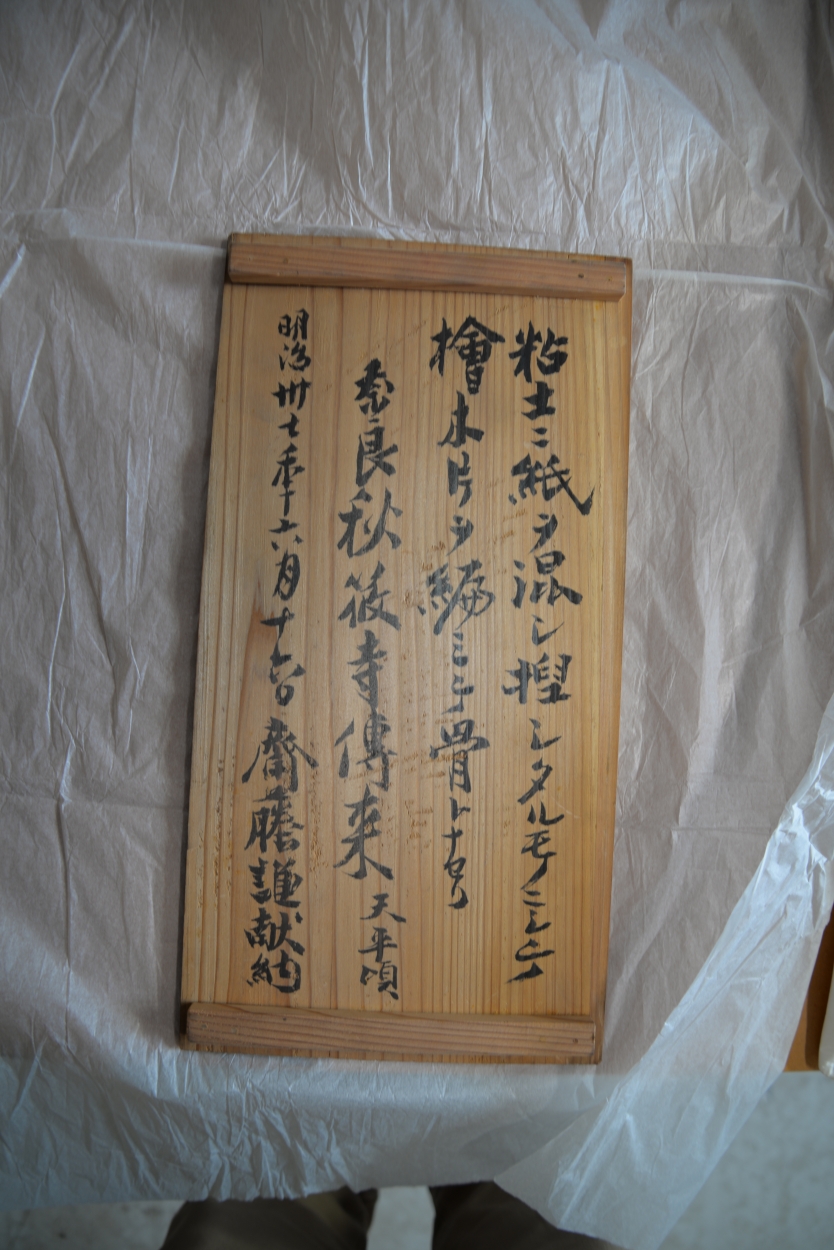 粘土ニ紙ヲ混シ捏シタルモノニシテ
檜木片ヲ編ミテ骨トナセリ
奈良秋篠寺傳来 天平頃
明治卅七年六月十六日 齋藤謙献納